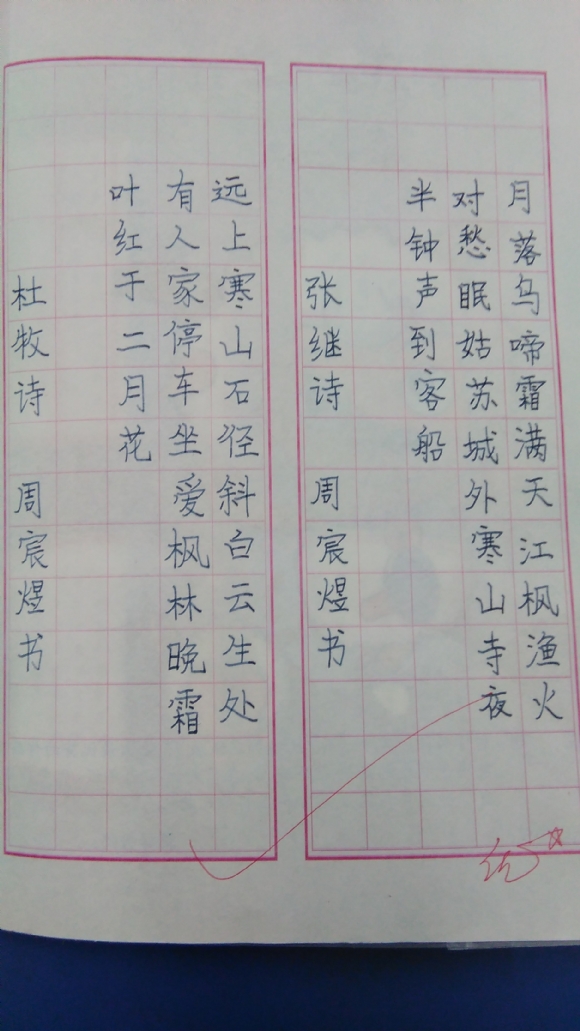 月落乌啼霜满天江枫渔火
对愁眠姑苏城外寒山寺夜
半钟声到客船
张继诗 周宸煜书
远上寒山石径斜白云生处
有人家停车坐爱枫林晚霜
叶红于二月花
杜牧诗 周宸煜书
优